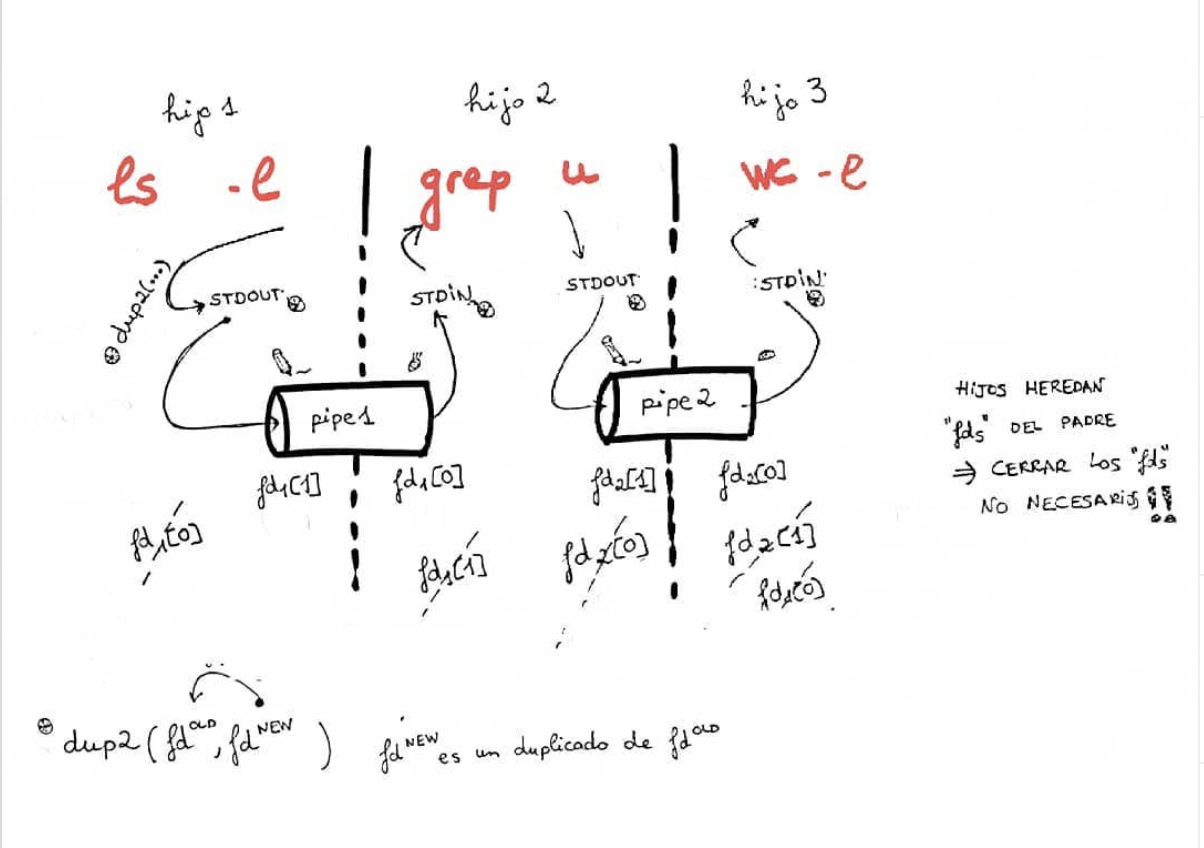 hijo 1
hijo 2
hijo 3
ls -l
grep u
wc -l
dup2(...)
STDOUT
STDIN
STDOUT
:STDIN:
pipe1
pipe2
fd1[1]
fd1[0]
fd2[1]
fd2[0]
fd1[0]
fd1[1]
fd2[0]
fd2[1]
fd1[0]
HIJOS HEREDAN
"fds" DEL PADRE
⇒ CERRAR LOS "fds"
NO NECESARIOS !!
dup2 (fd OLD, fd NEW)
fd NEW es un duplicado de fd OLD